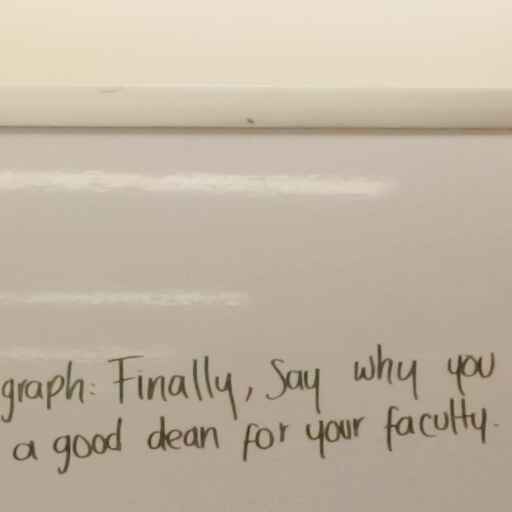 graph: Finally, Say why you
a good dean for your faculty.